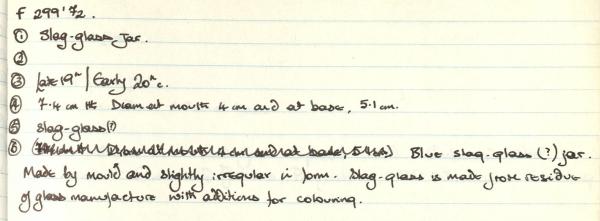 F 299'72.
① Slag-glass jar.
②
③ Late 19th / Early 20th c.
④ 7.4 cm Ht Diam at mouth 4 cm and at base, 5.1 cm.
⑤ Slag-glass (?)
⑥ Blue slag-glass (?) jar.
Made by mould and slightly irregular in form. Slag-glass is made from residue
of glass manufacture with additions for colouring.